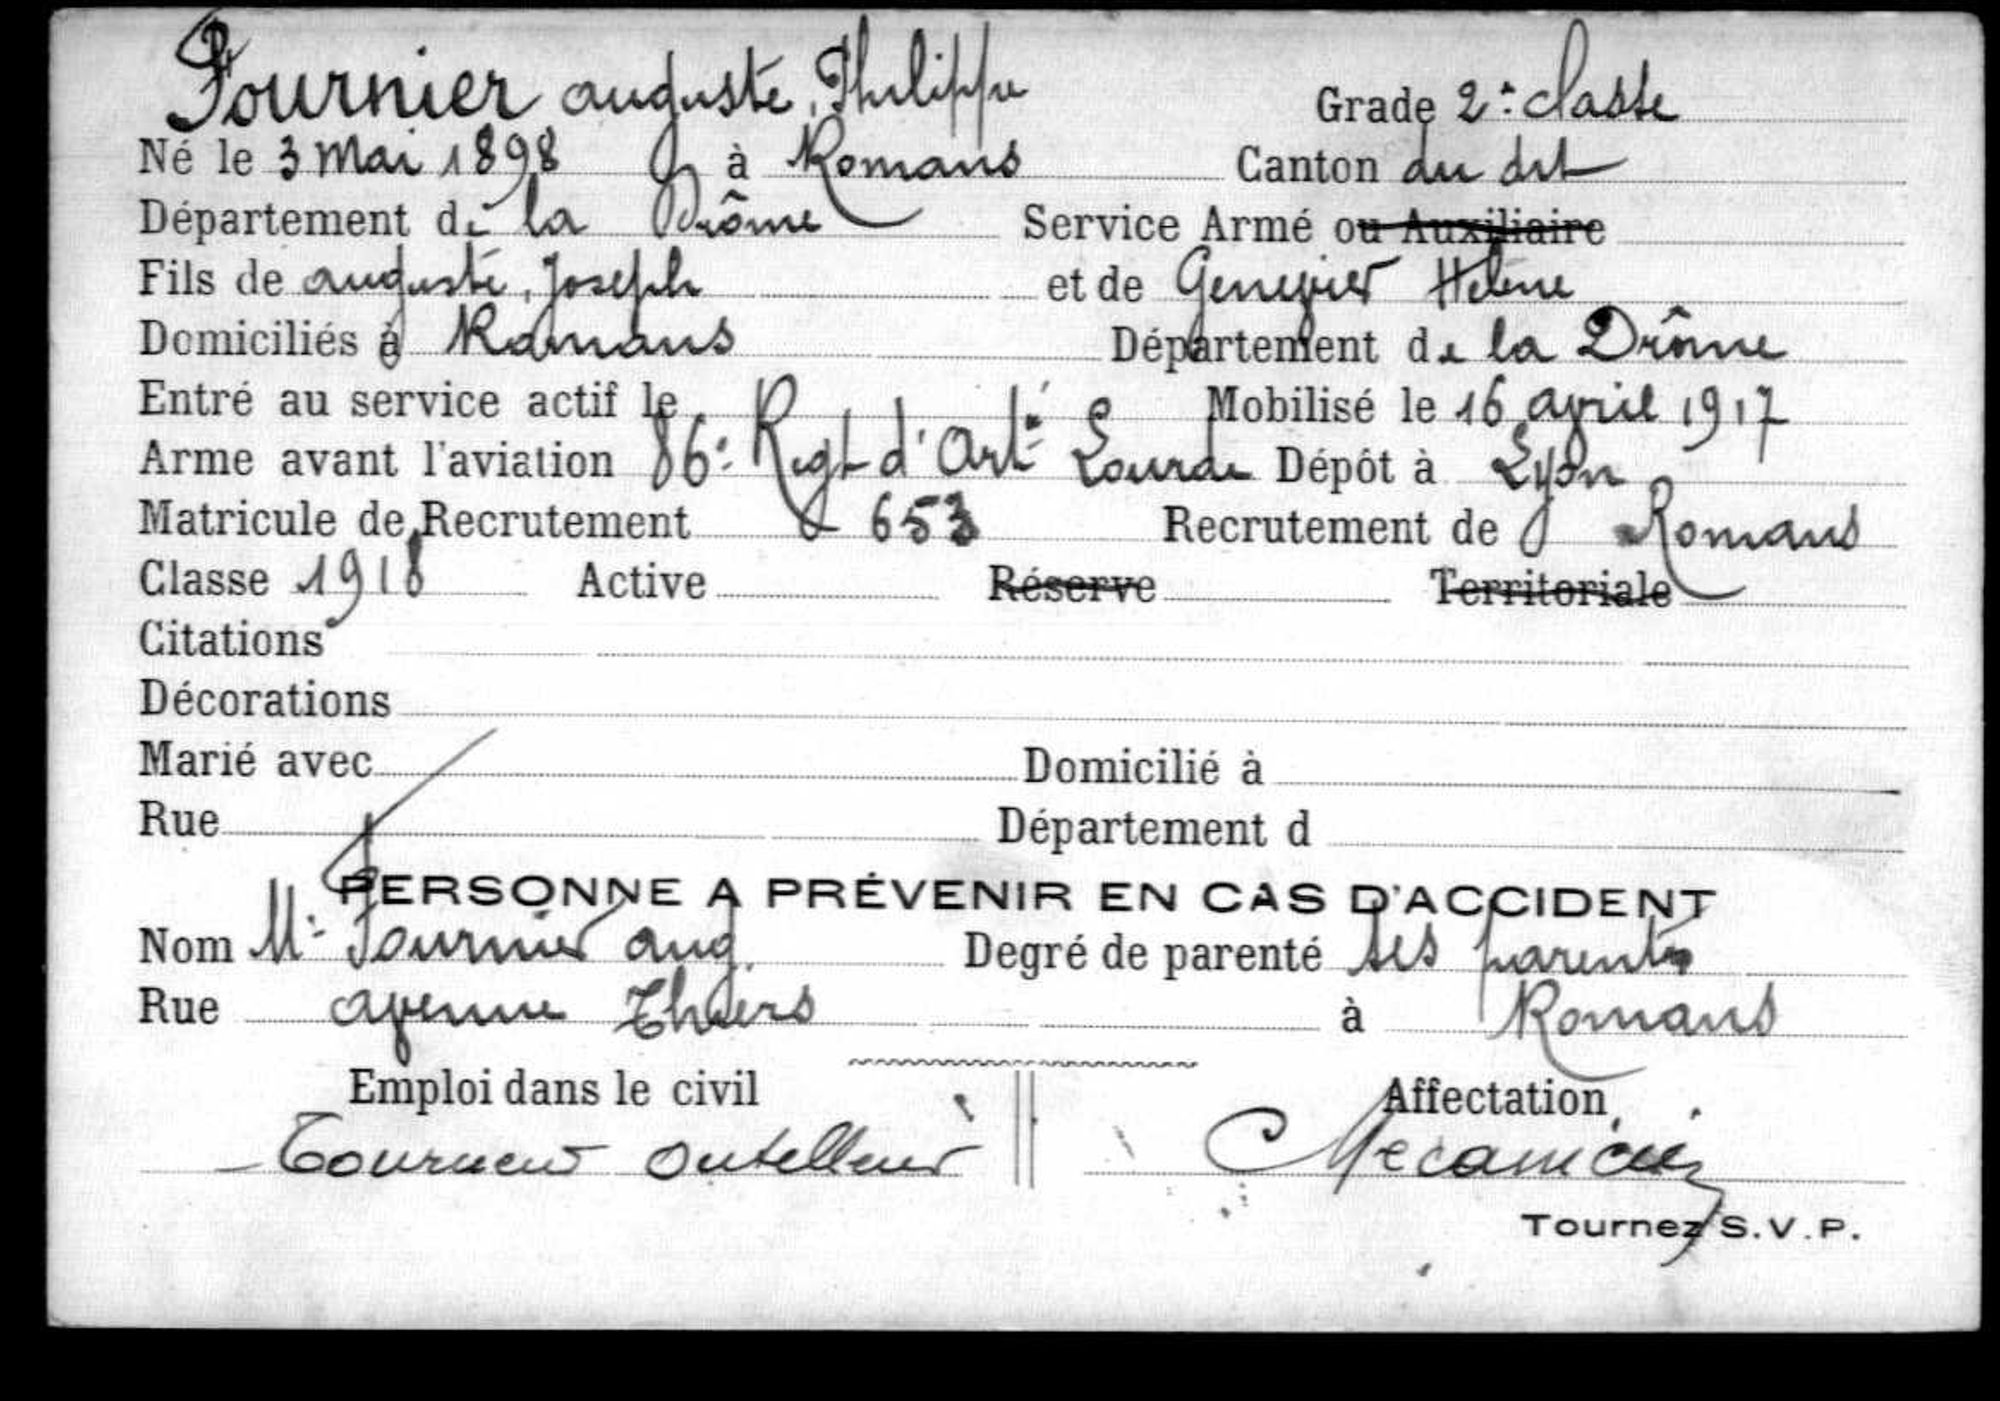 Fournier auguste, Philippe Grade 2e classe
Né le 3 Mai 1898 à Romans Canton du dit
Département de la Drôme Service Armé ou Auxiliaire
Fils de auguste, Joseph et de Genevier Hélène
Domiciliés à Romans Département de la Drôme
Entré au service actif le Mobilisé le 16 avril 1917
Arme avant l'aviation 86e Regt d'Artie Lourde Dépôt à Lyon
Matricule de Recrutement 653 Recrutement de Romans
Classe 1918 Active Réserve Territoriale
Citations
Décorations
Marié avec Domicilié à
Rue Département d
PERSONNE A PRÉVENIR EN CAS D'ACCIDENT
Nom Mr Fournier aug. Degré de parenté ses parents
Rue avenue Thiers à Romans
Emploi dans le civil Affectation
Tourneur outilleur Mécanicien
Tournez S.V.P.